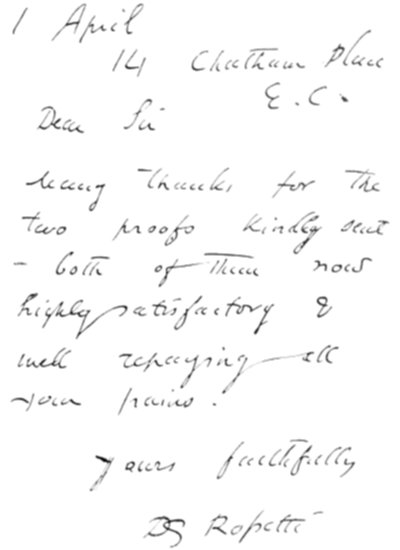 1 April
14 Chatham Place
E.C.
Dear Sir
Many thanks for the
two proofs kindly sent
- both of them now
highly satisfactory &
well repaying all
your pains.
yours faithfully
DG Rossetti